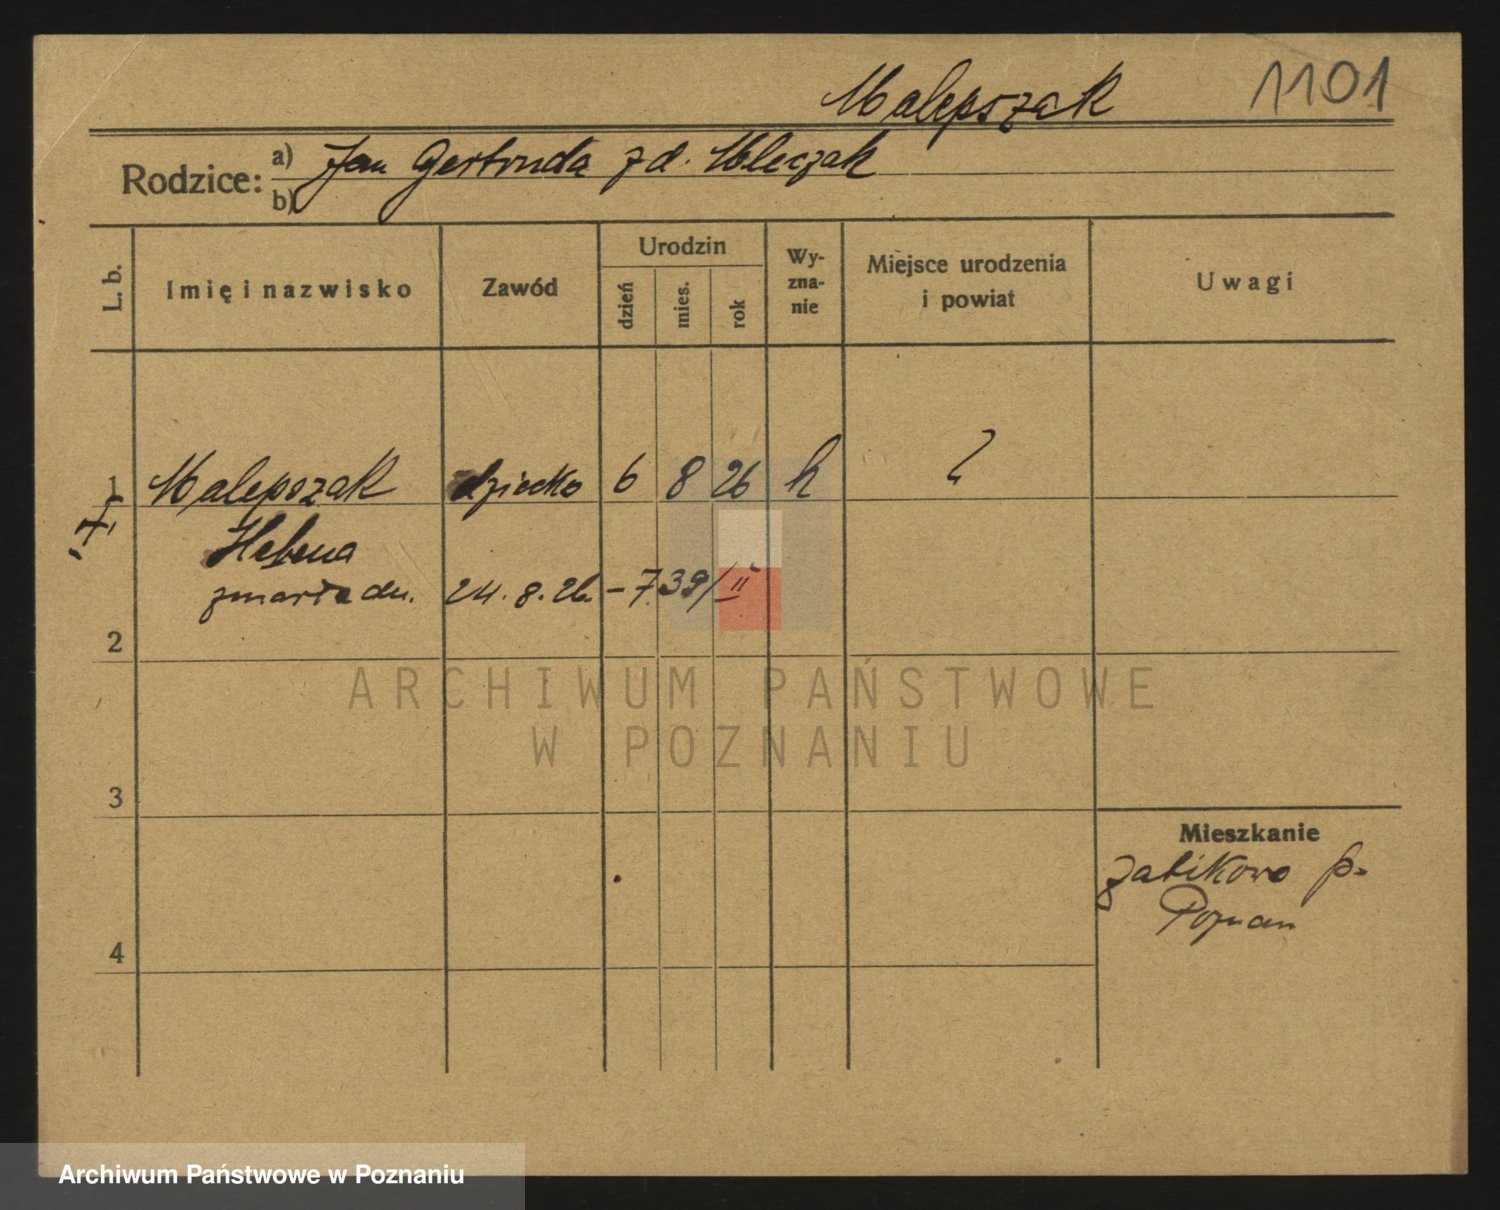 Malepszak 1101
Rodzice: a) Jan Gertruda zd. Mleczak
b)
L. b.
Imię i nazwisko
Zawód
Urodzin
dzień
mies.
rok
Wy-
zna-
nie
Miejsce urodzenia
i powiat
Uwagi
1 Malepszak dziecko 6 8 26 k ?
Helena
zmarła dn. 24. 8. 26. – 739/II
2
3
4
Mieszkanie
Żabikowo p.
Poznan
ARCHIWUM PAŃSTWOWE
W POZNANIU
Archiwum Państwowe w Poznaniu